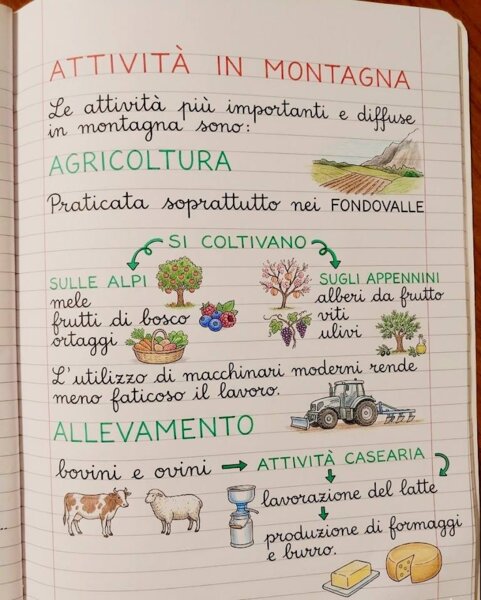 ATTIVITÀ IN MONTAGNA
Le attività più importanti e diffuse
in montagna sono:
AGRICOLTURA
Praticata soprattutto nei FONDOVALLE
SI COLTIVANO
SULLE ALPI
mele
frutti di bosco
ortaggi
SUGLI APPENNINI
alberi da frutto
viti
ulivi
L'utilizzo di macchinari moderni rende
meno faticoso il lavoro.
ALLEVAMENTO
bovini e ovini → ATTIVITÀ CASEARIA
lavorazione del latte
produzione di formaggi
e burro.